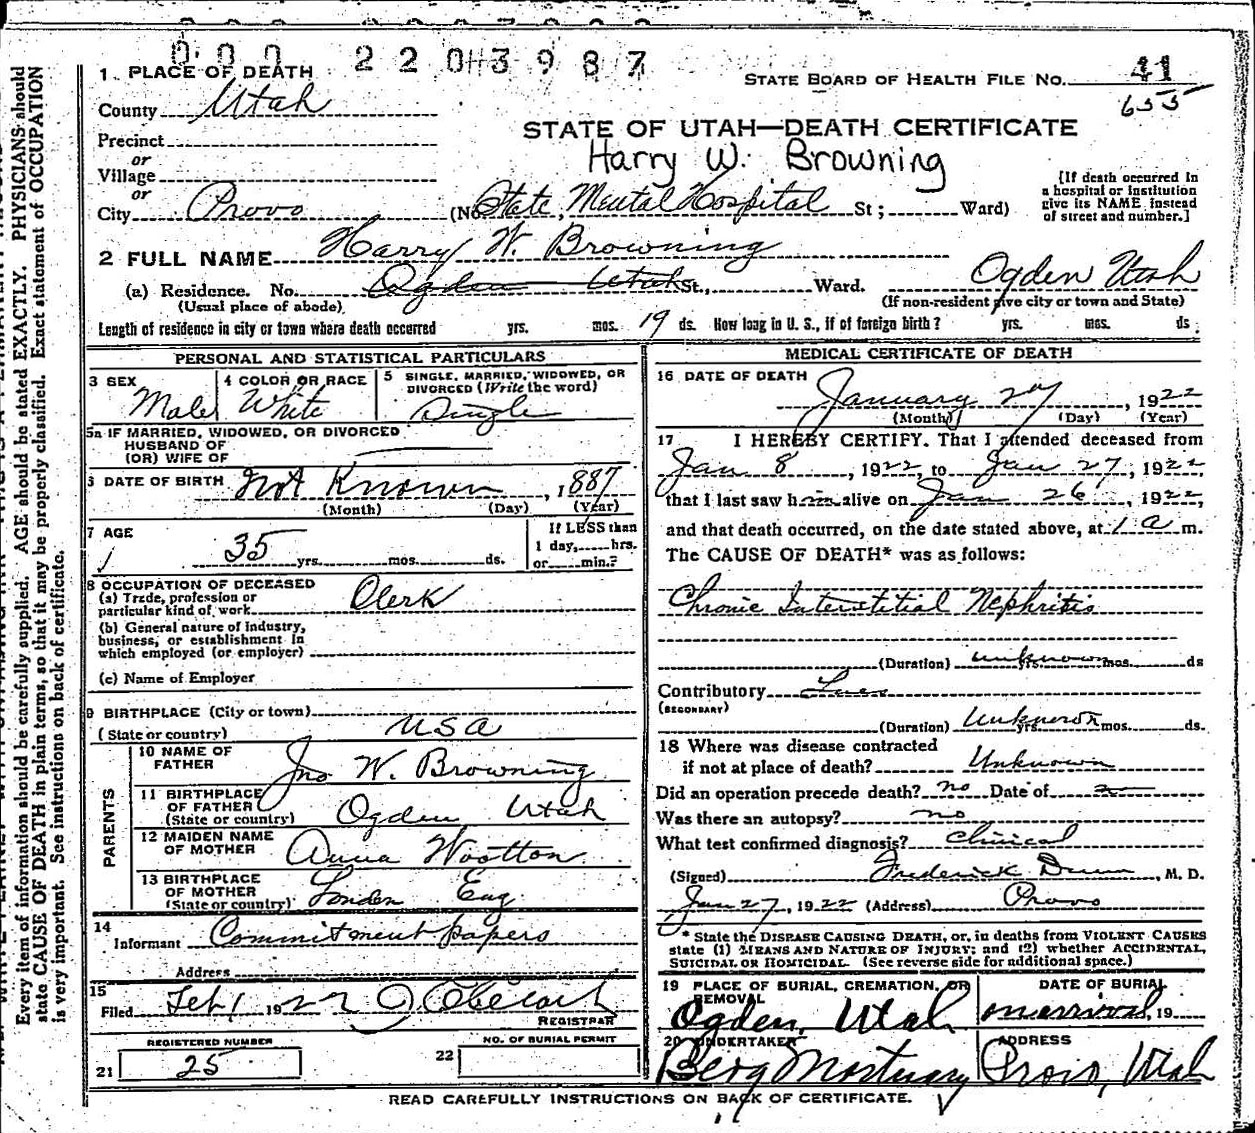 000 2203987
1 PLACE OF DEATH
STATE BOARD OF HEALTH FILE NO. 41
655
County Utah
STATE OF UTAH—DEATH CERTIFICATE
Precinct
Harry W. Browning
or
Village
or
City Provo (No. State Mental Hospital St; Ward)
[If death occurred in
a hospital or institution
give its NAME instead
of street and number.]
2 FULL NAME Harry W. Browning
(a) Residence. No. Ogden Utah St., Ward. Ogden Utah
(Usual place of abode) (If non-resident give city or town and State)
Length of residence in city or town where death occurred yrs. mos. 19 ds. How long in U. S., if of foreign birth? yrs. mos. ds.
PERSONAL AND STATISTICAL PARTICULARS
3 SEX Male
4 COLOR OR RACE White
5 SINGLE, MARRIED, WIDOWED, OR
DIVORCED (Write the word)
Single
5a IF MARRIED, WIDOWED, OR DIVORCED
HUSBAND OF
(OR) WIFE OF
6 DATE OF BIRTH Not Known, 1887
(Month) (Day) (Year)
7 AGE
35 yrs. mos. ds.
If LESS than
1 day, hrs.
or min.?
8 OCCUPATION OF DECEASED
(a) Trade, profession or
particular kind of work Clerk
(b) General nature of Industry,
business, or establishment in
which employed (or employer)
(c) Name of Employer
9 BIRTHPLACE (City or town)
(State or country) USA
PARENTS
10 NAME OF
FATHER Jno W. Browning
11 BIRTHPLACE
OF FATHER
(State or country) Ogden Utah
12 MAIDEN NAME
OF MOTHER Anna Wootton
13 BIRTHPLACE
OF MOTHER
(State or country) London Eng
14
Informant Commitment papers
Address
15
Filed Feb 1 1922
REGISTRAR
REGISTERED NUMBER
21 25
NO. OF BURIAL PERMIT
22
MEDICAL CERTIFICATE OF DEATH
16 DATE OF DEATH
January 27, 1922
(Month) (Day) (Year)
17 I HEREBY CERTIFY. That I attended deceased from
Jan 8, 1922, to Jan 27, 1922
that I last saw him alive on Jan 26, 1922,
and that death occurred, on the date stated above, at 1 a m.
The CAUSE OF DEATH* was as follows:
Chronic Interstitial Nephritis
(Duration) unknown mos. ds
Contributory Lues
(SECONDARY)
(Duration) Unknown yrs. mos. ds.
18 Where was disease contracted
if not at place of death? Unknown
Did an operation precede death? no Date of
Was there an autopsy? no
What test confirmed diagnosis? Clinical
(Signed) Frederick Dunn, M. D.
Jan 27, 1922 (Address) Provo
* State the DISEASE CAUSING DEATH, or, in deaths from VIOLENT CAUSES
state (1) MEANS AND NATURE OF INJURY; and (2) whether ACCIDENTAL,
SUICIDAL OR HOMICIDAL. (See reverse side for additional space.)
19 PLACE OF BURIAL, CREMATION, OR
REMOVAL
Ogden, Utah
DATE OF BURIAL
on arrival, 19
20 UNDERTAKER
Berg Mortuary
ADDRESS
Provo, Utah
READ CAREFULLY INSTRUCTIONS ON BACK OF CERTIFICATE.
Every item of information should be carefully supplied. AGE should be stated EXACTLY. PHYSICIANS should
state CAUSE OF DEATH in plain terms, so that it may be properly classified. Exact statement of OCCUPATION
is very important. See instructions on back of certificate.